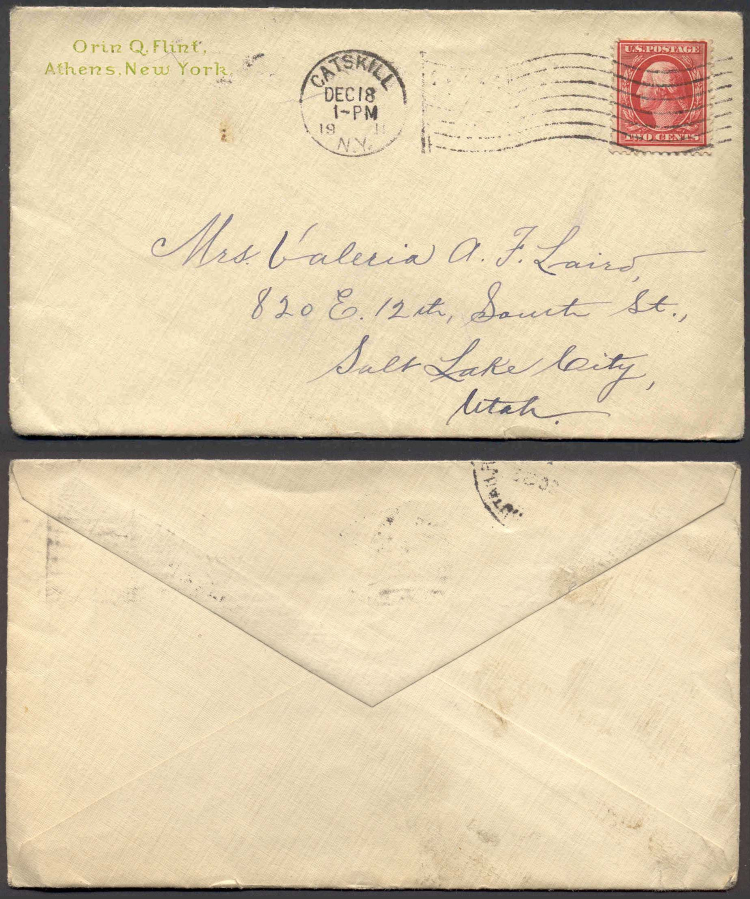 Orin Q. Flint,
Athens, New York.
CATSKILL
DEC 18
1-PM
19
N.Y.
U.S. POSTAGE
TWO CENTS
Mrs. Valeria A. F. Laird,
820 E. 12th, South St.,
Salt Lake City,
Utah.
UTAH